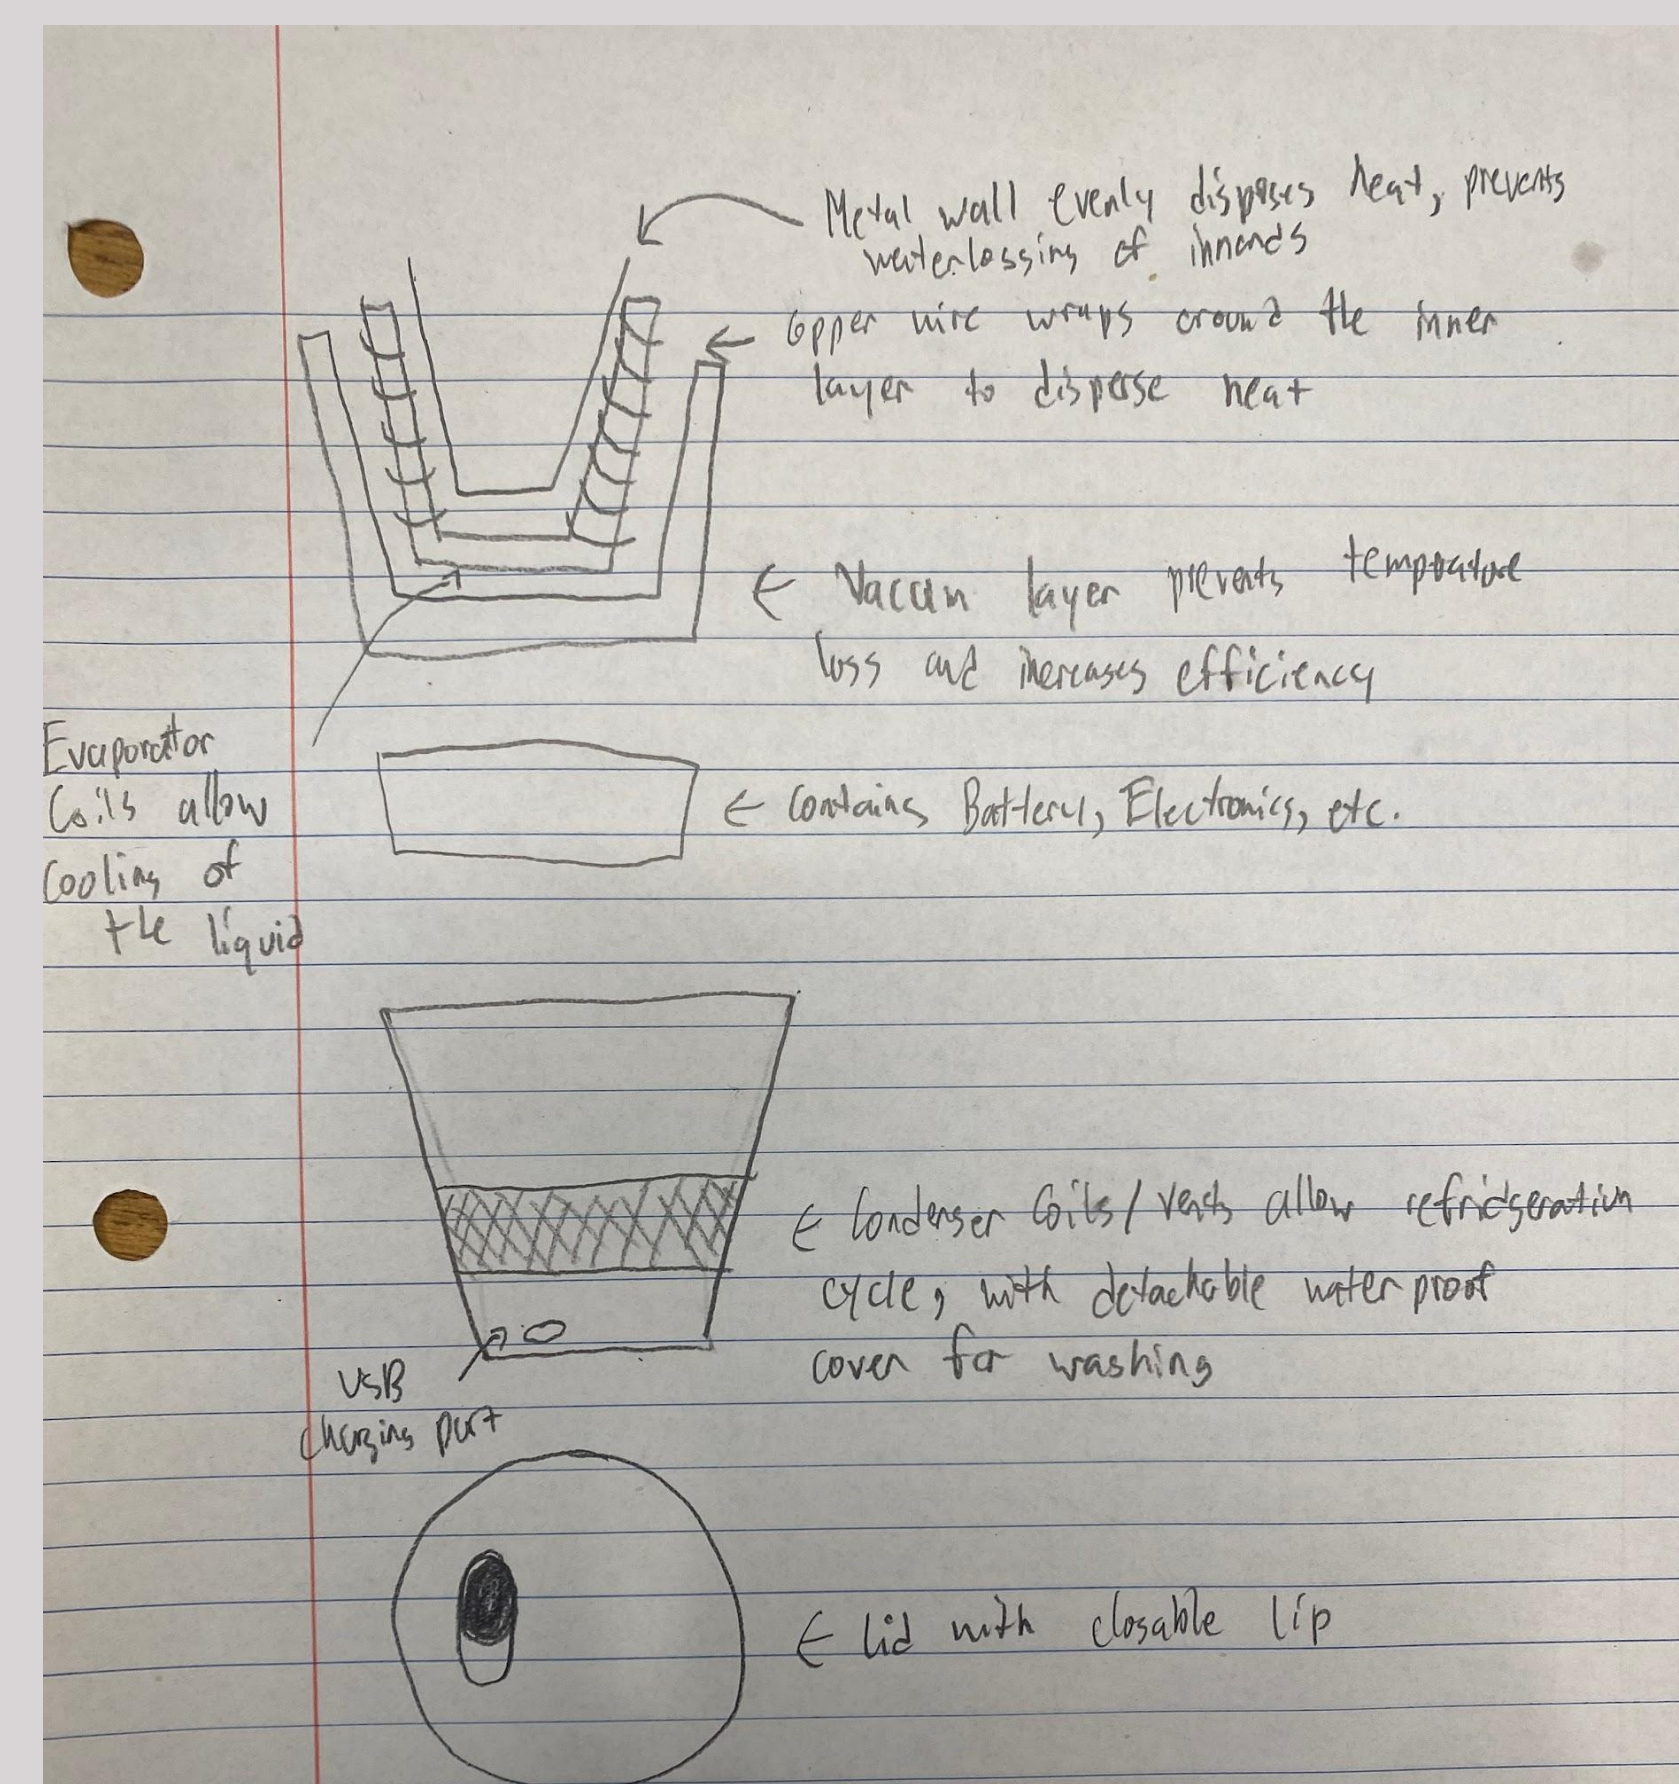 Metal wall evenly disposes heat, prevents
waterlogging of innards
Copper wire wraps around the inner
layer to disperse heat
Vaccum layer prevents temprature
loss and increases efficiency
Evaporator
Coils allow
cooling of
the liquid
Contains Battery, Electronics, etc.
Condenser Coils/vents allow refridgeration
cycle, with detachable waterproof
cover for washing
USB
charging port
lid with closable lip